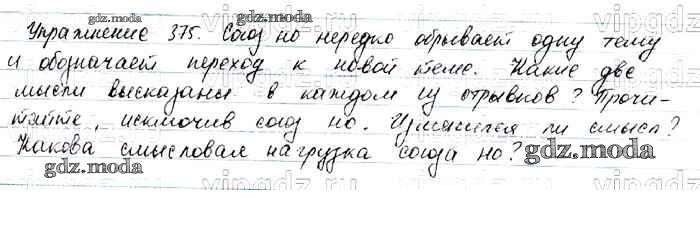 Упражнение 375. Союз но нередко обрывает одну тему
и обозначает переход к новой теме. Какие две
мысли высказаны в каждом из отрывков? Прочи-
тайте, исключив союз но. Изменился ли смысл?
Какова смысловая нагрузка союза но?
gdz.moda
gdz.moda
gdz.moda
gdz.moda
gdz.moda
vipgdz.ru
vipgdz.ru